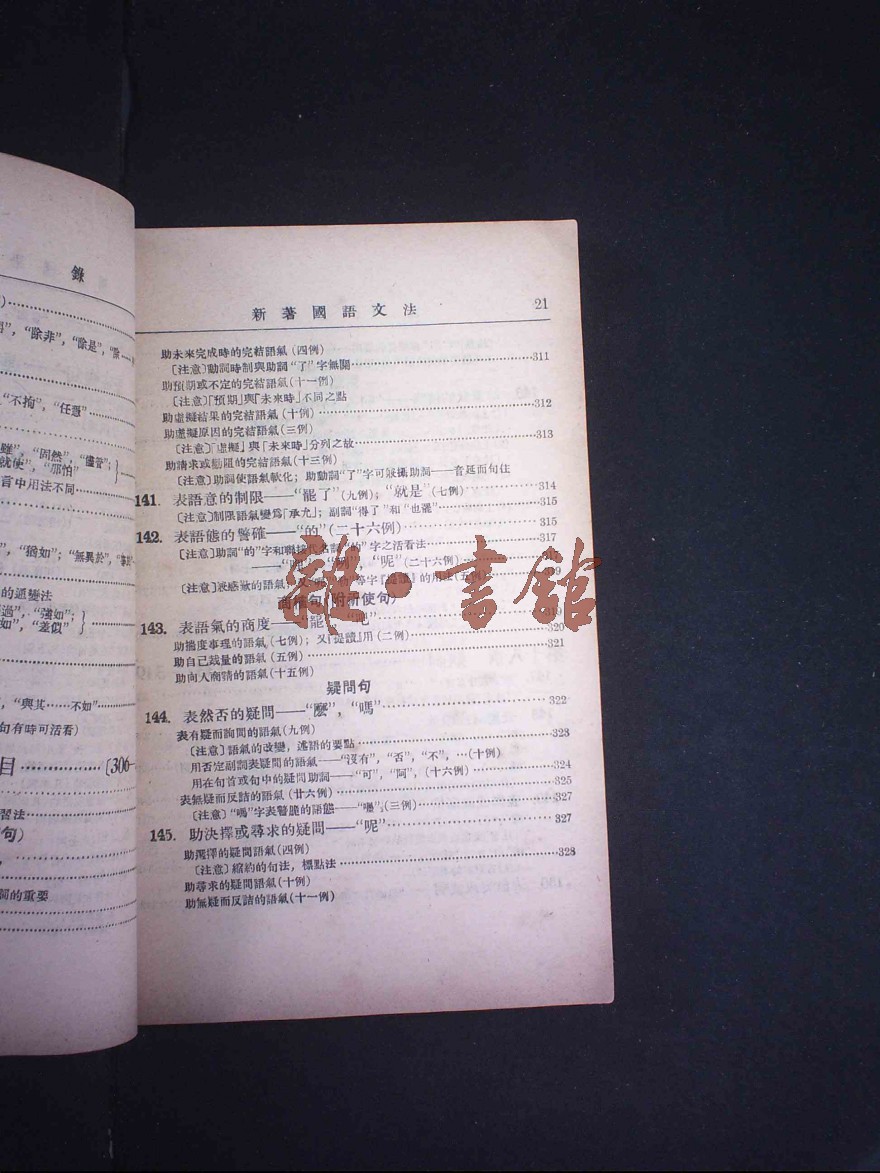 錄
"除非", "除是",
"不拘", "任憑"
"固然", "儘管";
就使", "那怕"
言中用法不同
"猶如"; "無異於",
的遞變法
過", "強如";
如", "差似"
"與其……不如"
句有時可活看)
目……〔306-
習法
句)
詞的重要
新著國語文法 21
助未來完成時的完結語氣(四例)
〔注意〕動詞時制與助詞"了"字無關……311
助預期或不定的完結語氣(十一例)
〔注意〕「預期」與「未來時」不同之點
助虛擬結果的完結語氣(十例)……312
助虛擬原因的完結語氣(三例)
〔注意〕「虛擬」與「未來時」分列之故……313
助請求或勸阻的完結語氣(十三例)
〔注意〕助詞使語氣軟化; 助動詞"了"字可兼攝助詞——音延而句住
141. 表語意的制限——"罷了"(九例); "就是"(七例)……314
〔注意〕制限語氣變爲「承允」; 副詞"得了"和"也罷"……315
142. 表語態的警確——"的"(二十六例)……315
〔注意〕助詞"的"字和聯接代名詞"的"字之活看法……317
"呢"(二十六例)
〔注意〕表感歎的語氣, 的用法(五例)
商榷句(附祈使句)
143. 表語氣的商度——"罷", "吧"……319
助揣度事理的語氣(七例); 又『提讀』用(二例)……320
助自己裁量的語氣(五例)……321
助向人商請的語氣(十五例)
疑問句
144. 表然否的疑問——"麼", "嗎"……322
表有疑而詢問的語氣(九例)
〔注意〕語氣的改變, 述語的要點……323
用否定副詞表疑問的語氣——"沒有", "否", "不", …(十例)
用在句首或句中的疑問助詞——"可", "阿", (十六例)……324
表無疑而反詰的語氣(廿六例)……325
〔注意〕"嗎"字表警脆的語態——"嚜",(三例)……327
145. 助決擇或尋求的疑問——"呢"……327
助選擇的疑問語氣(四例)
〔注意〕縮約的句法, 標點法……328
助尋求的疑問語氣(十例)
助無疑而反詰的語氣(十一例)
雜·書館